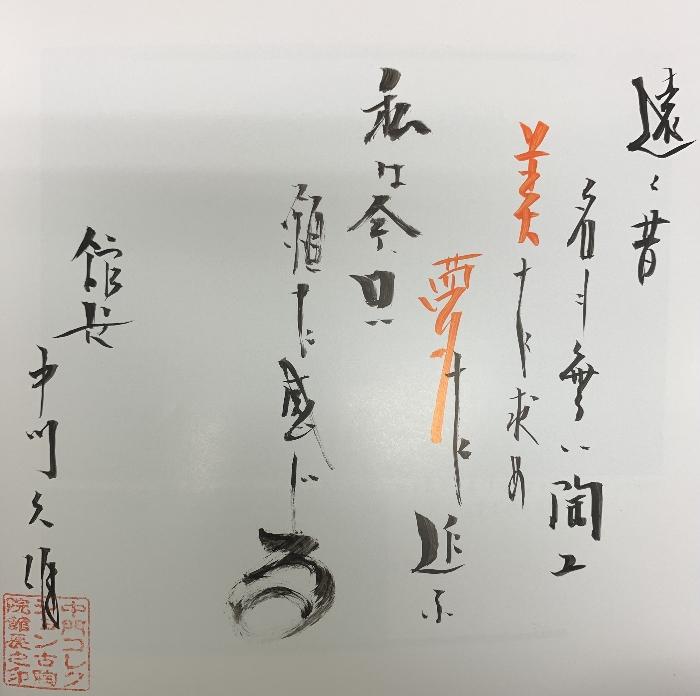 遠く昔
名も無い陶工
美を求め
夢を追ふ
私は今日
を感じる
館長
中門久
中門コレク
ション古陶
院館長之印